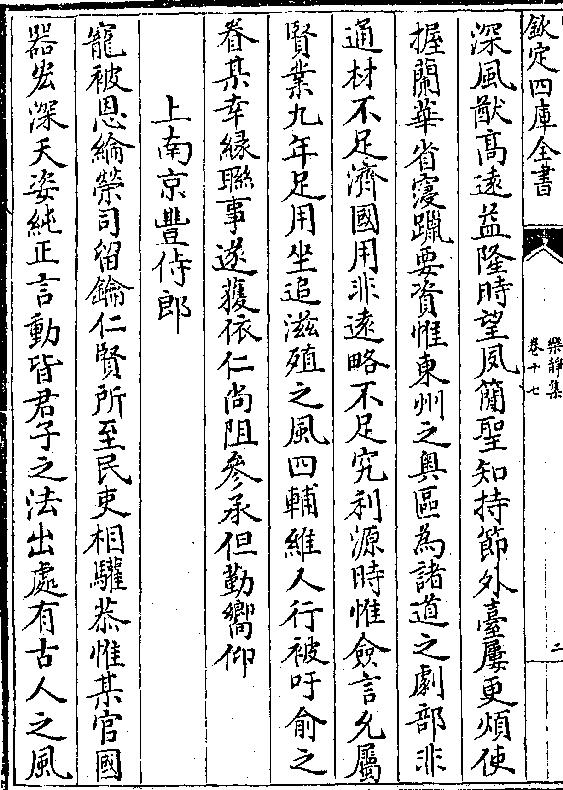 欽定四庫全書
樂靜集
卷十七
二
深風猷髙遠益隆時望夙簡聖知持節外臺屢更煩使
握蘭華省寖躐要資惟東州之奥區為諸道之劇部非
通材不足濟國用非遠略不足究利源時惟僉言允屬
賢業九年足用坐追滋殖之風四輔維人行被吁俞之
眷某幸縁聯事遂獲依仁尚阻參承但勤嚮仰
上南京豐侍郎
寵被恩綸榮司留鑰仁賢所至民吏相驩恭惟某官國
器宏深天姿純正言動皆君子之法出處有古人之風